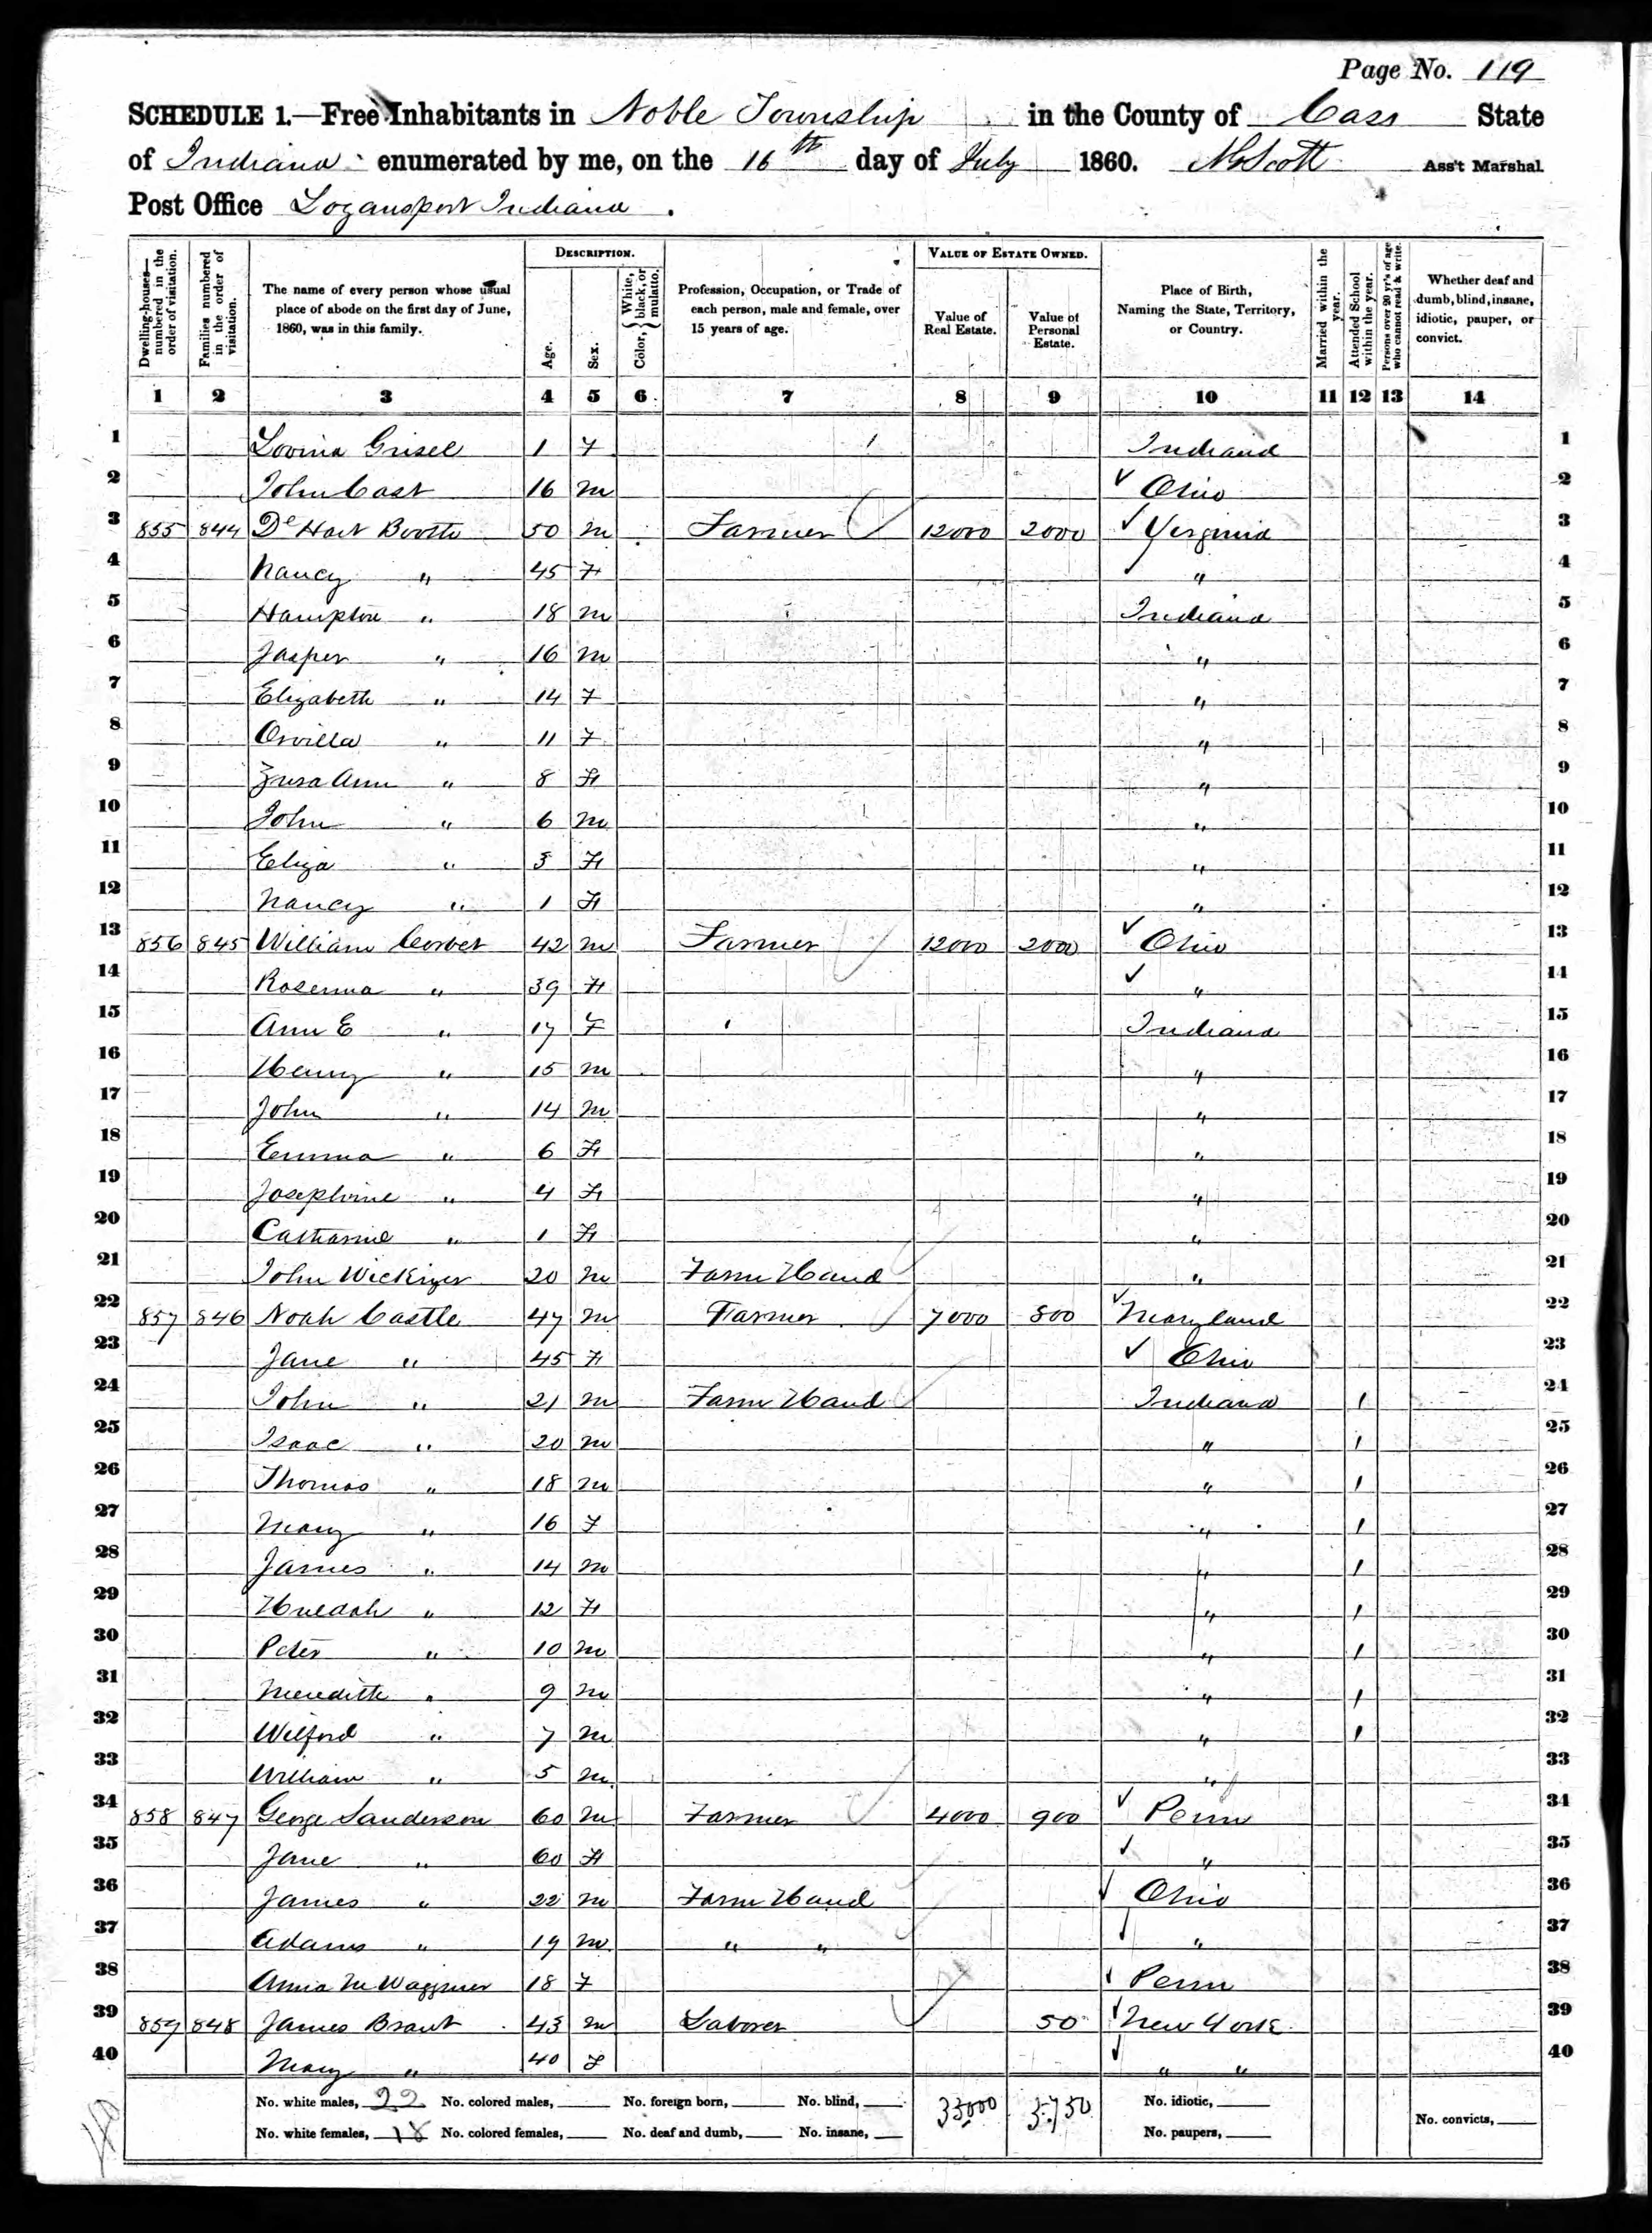 Page No. 119
SCHEDULE 1.—Free Inhabitants in Noble Township in the County of Cass State
of Indiana enumerated by me, on the 16th day of July 1860. Scott Ass't Marshal.
Post Office Logansport Indiana.
Dwelling-houses—numbered in the order of visitation.
Families numbered in the order of visitation.
The name of every person whose usual place of abode on the first day of June, 1860, was in this family.
DESCRIPTION.
Age.
Sex.
Color, { White, black, or mulatto.
Profession, Occupation, or Trade of each person, male and female, over 15 years of age.
VALUE OF ESTATE OWNED.
Value of Real Estate.
Value of Personal Estate.
Place of Birth, Naming the State, Territory, or Country.
Married within the year.
Attended School within the year.
Persons over 20 yr's of age who cannot read & write.
Whether deaf and dumb, blind, insane, idiotic, pauper, or convict.
1 2 3 4 5 6 7 8 9 10 11 12 13 14
1 Lovina Grisel 1 F Indiana 1
2 John Cast 16 m ✓ Ohio 2
3 855 844 De Hart Booth 50 m Farmer 12000 2000 ✓ Virginia 3
4 Nancy " 45 F ✓ " 4
5 Hampton " 18 m Indiana 5
6 Jasper " 16 m " 6
7 Elizabeth " 14 F " 7
8 Orvilla " 11 F " 8
9 Ann " 8 F " 9
10 John " 6 m " 10
11 Eliza " 3 F " 11
12 Nancy " 1 F " 12
13 856 845 William Corbet 42 m Farmer 12000 2000 ✓ Ohio 13
14 Rosenna " 39 F ✓ " 14
15 Ann E " 17 F Indiana 15
16 Henry " 15 m " 16
17 John " 14 m " 17
18 Emma " 6 F " 18
19 Josephine " 4 F " 19
20 Catharine " 1 F " 20
21 John Wickizer 20 m Farm Hand " 21
22 857 846 Noah Castle 47 m Farmer 7000 800 ✓ Maryland 22
23 Jane " 45 F ✓ Ohio 23
24 John " 21 m Farm Hand Indiana 1 24
25 Isaac " 20 m " 1 25
26 Thomas " 18 m " 1 26
27 Mary " 16 F " 1 27
28 James " 14 m " 1 28
29 Huldah " 12 F " 1 29
30 Peter " 10 m " 1 30
31 Meredith " 9 m " 1 31
32 Wilford " 7 m " 1 32
33 William " 5 m " 33
34 858 847 George Sanderson 60 m Farmer 4000 900 ✓ Penn 34
35 Jane " 60 F ✓ " 35
36 James " 22 m Farm Hand ✓ Ohio 36
37 Adam " 19 m " " ✓ " 37
38 Anna M Waggner 18 F ✓ Penn 38
39 859 848 James Brant 43 m Laborer 50 ✓ New York 39
40 Mary " 40 F ✓ " " 40
No. white males, 22 No. colored males, No. foreign born, No. blind, 35000 5750 No. idiotic,
No. white females, 18 No. colored females, No. deaf and dumb, No. insane, No. paupers, No. convicts,